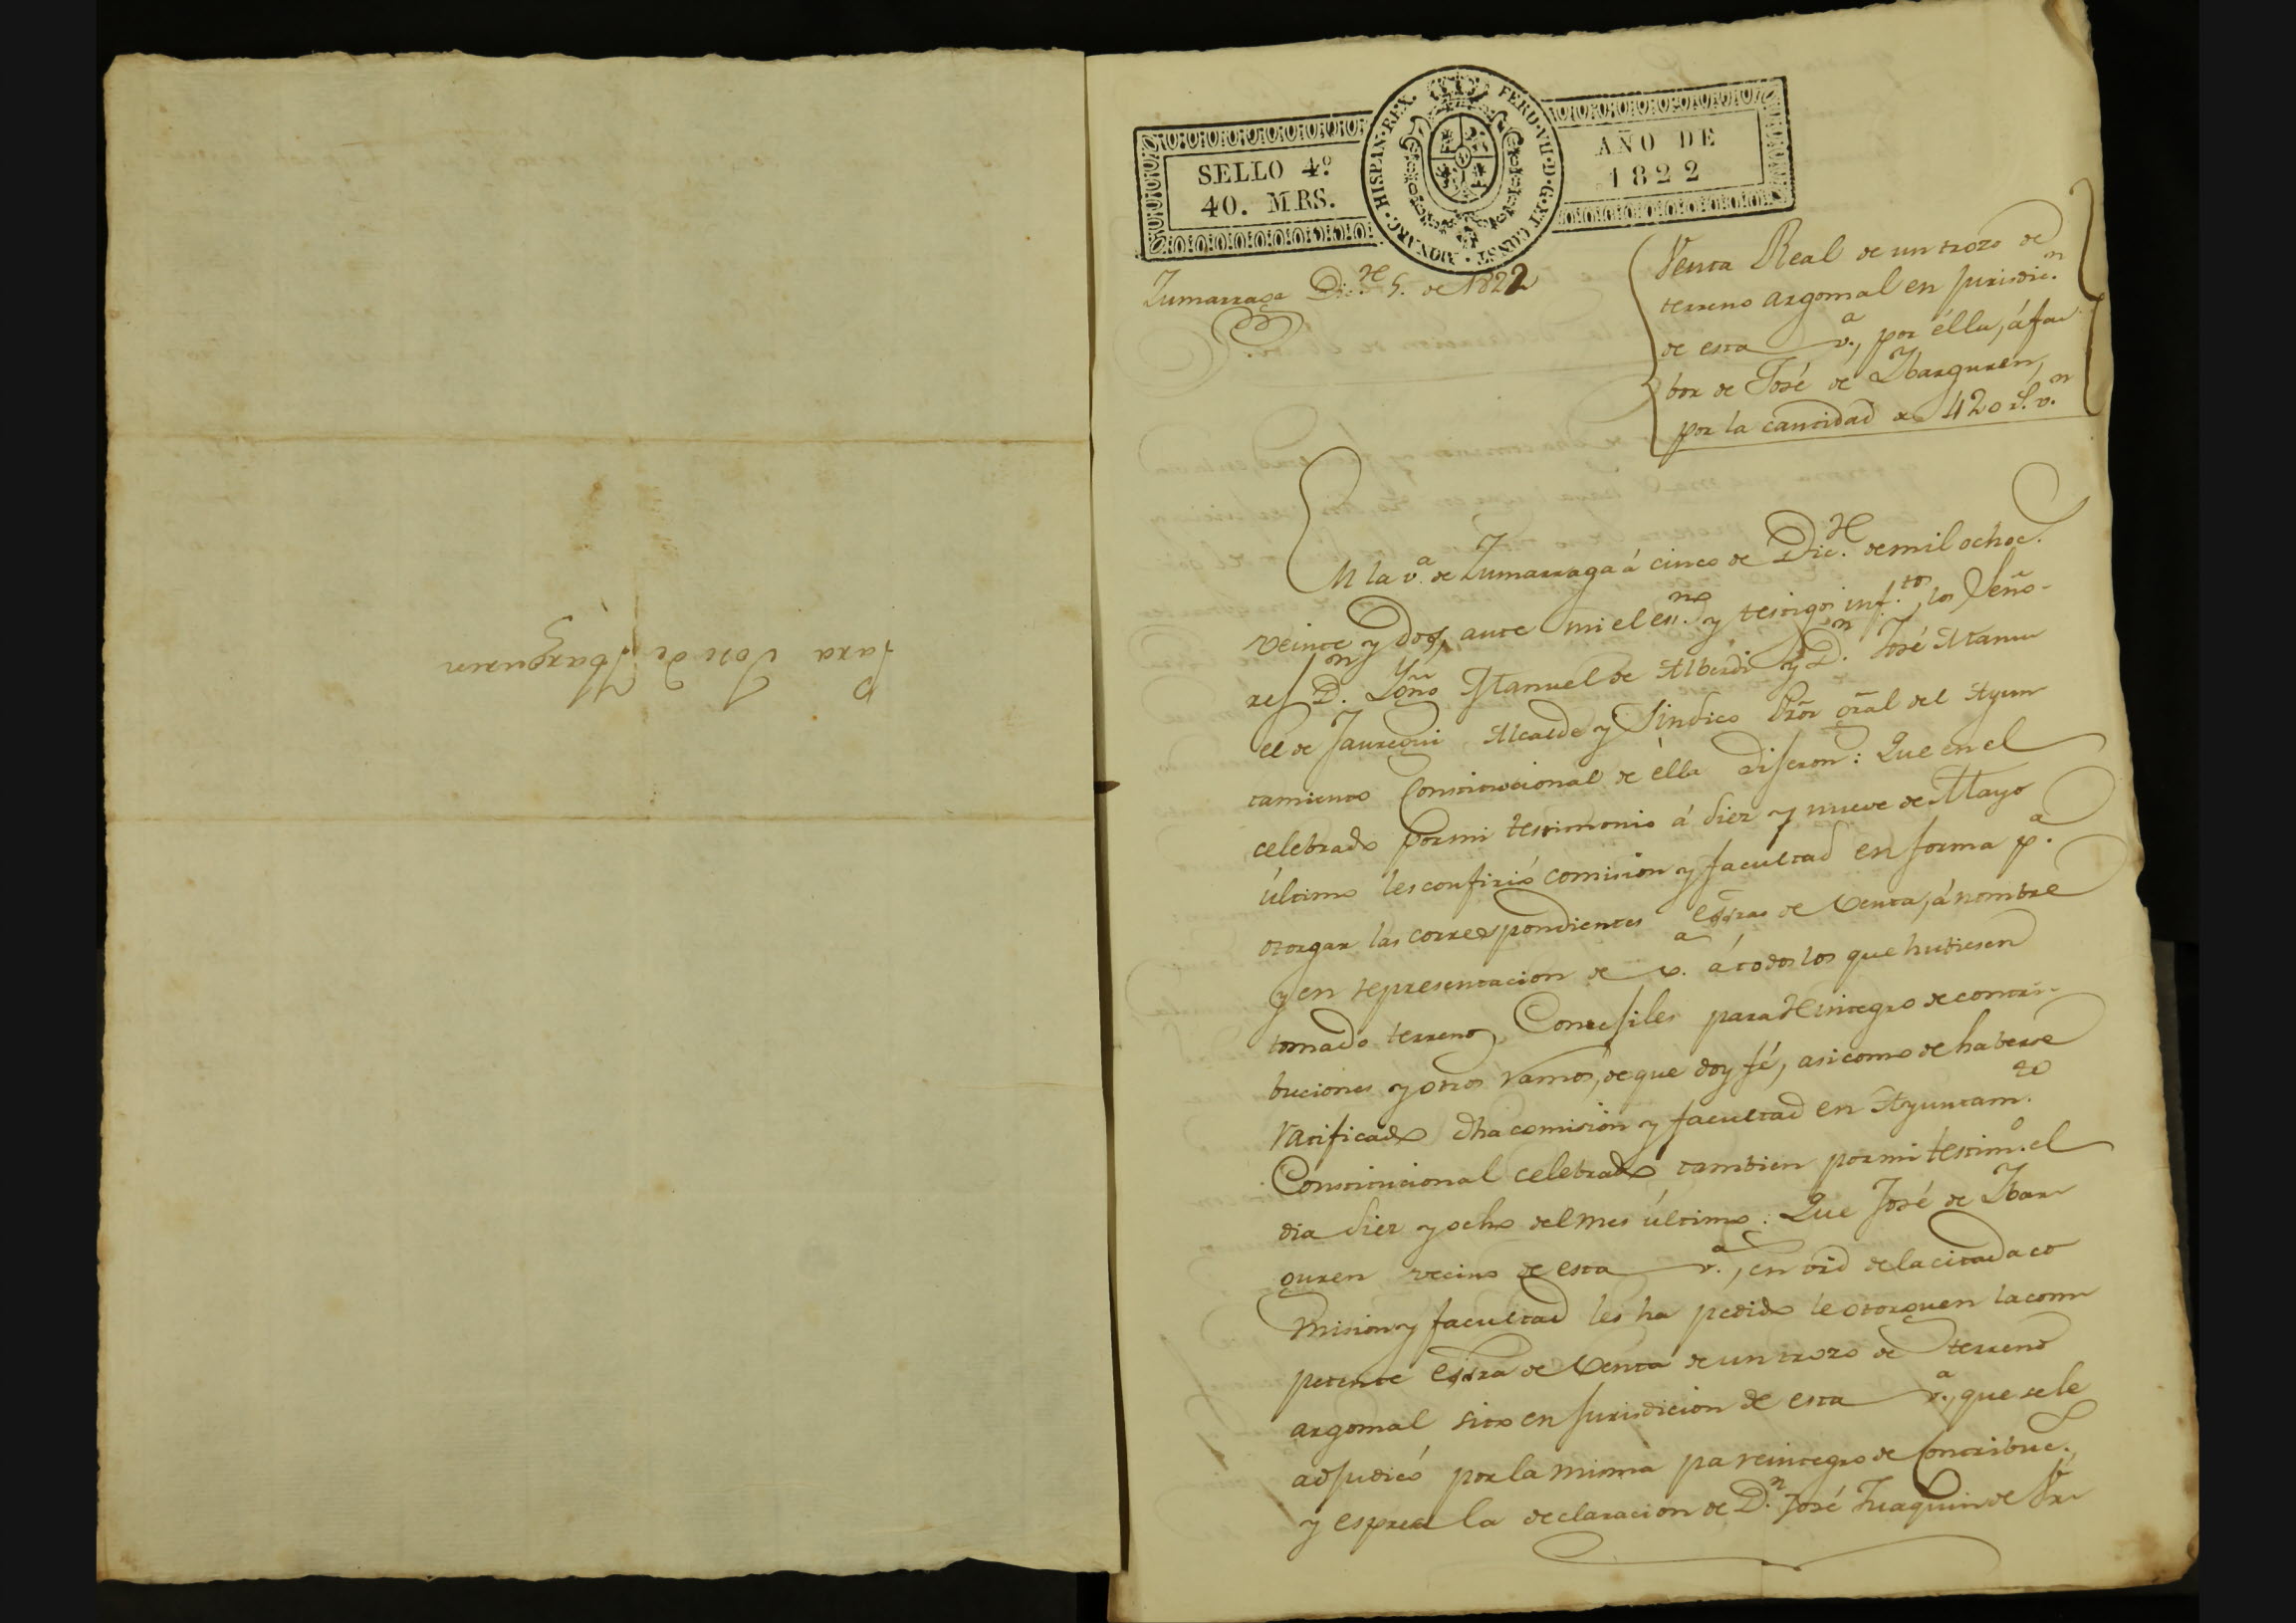 Para Jose de Ybarguren
SELLO 4º
40. MRS.
HISPAN·REX. FERD·VII·D·G·ET CONST·MONARC·
AÑO DE
1822
Zumarraga Dic.re 5. de 1822
Venta Real de un trozo de
terreno argomal en jurisdic.n
de esta v.a, por élla, á fa-
bor de José de Ybarguren,
por la cantidad de 420 r.s v.n
En la v.a de Zumarraga á cinco de Dic.re de mil ochoc.s
veinte y dos, ante mi el es.no y testigos inf.tos, los Seño-
res D.n Ygño Manuel de Alberdi y D.n José Manu-
el de Jauregui Alcalde y Sindico Pror gral del Ayun-
tamiento Constitucional de élla dijeron: Que en el
celebrado por mi testimonio á diez y nueve de Mayo
último les confirió comision y facultad en forma p.a
otorgar las correspondientes essras de Venta, á nombre
y en representacion de v.a á todos los que hubiesen
tomado terrenos Concejiles para Reintegro de contri-
buciones y otros ramos, de que doy fé, asi como de haberse
ratificado dha comision y facultad en Ayuntam.to
Constitucional celebrado tambien por mi testim.o el
dia diez y ocho del mes último: Que José de Ybar-
guren vecino de esta v.a, en vrd de la citada co
mision y facultad les ha pedido le otorguen la com-
petente essra de Venta de un trozo de terreno
argomal sito en jurisdicion de esta v.a, que se le
adjudicó por la misma pa reintegro de Contribuc.s,
y espresa la declaracion de D.n José Juaquin de Ur-